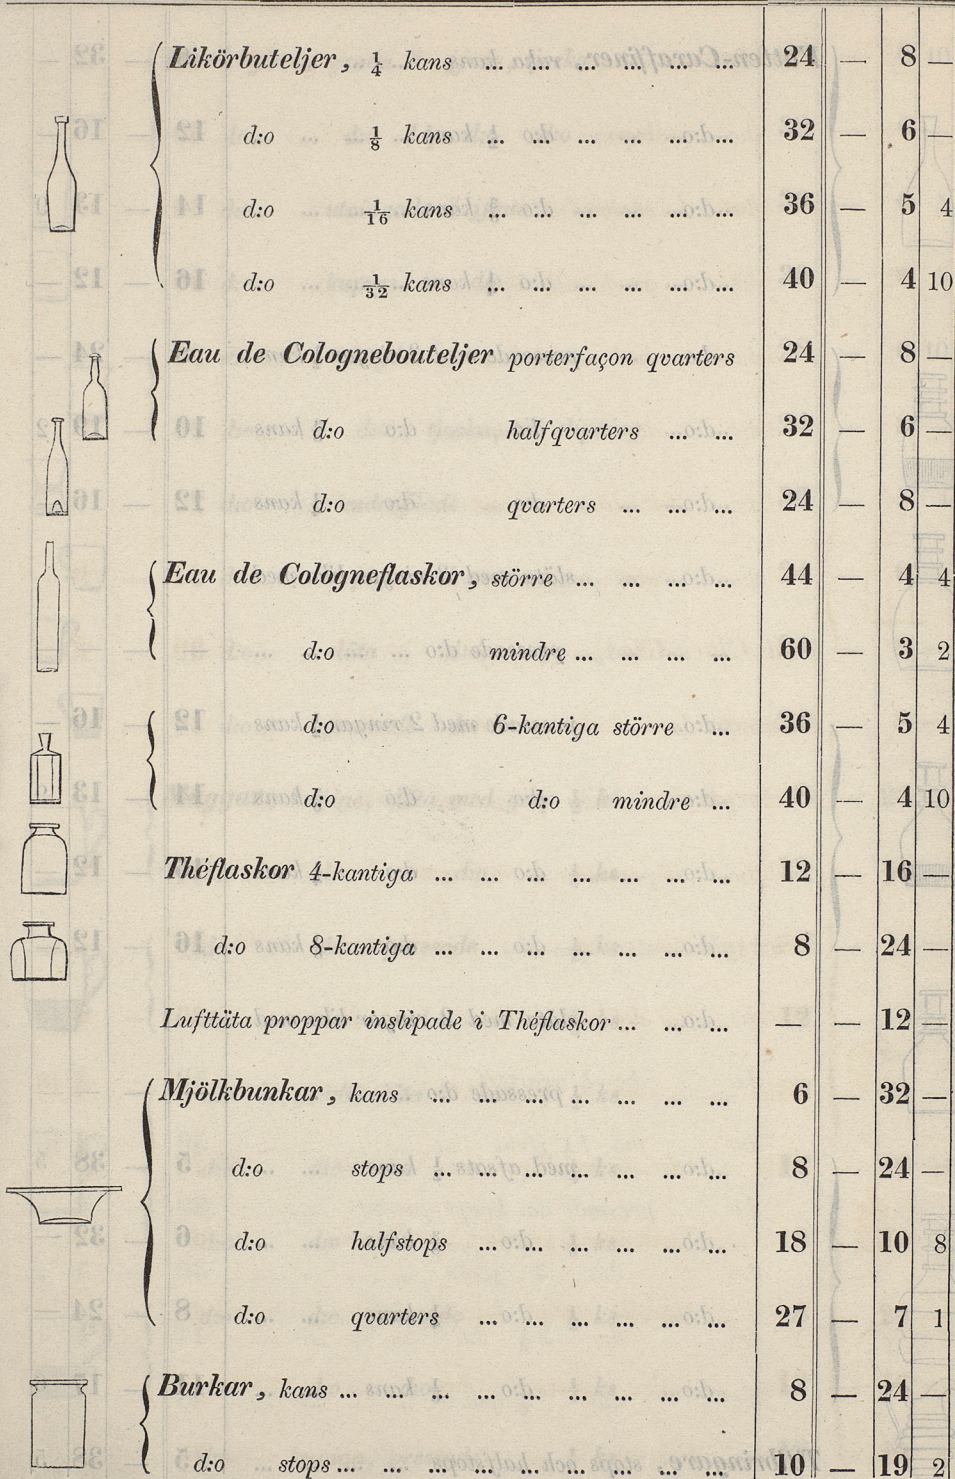 Likörbuteljer, 1/4 kans ... ... ... ... ... ... 24 — 8 —
d:o 1/8 kans ... ... ... ... ... ... 32 — 6 —
d:o 1/16 kans ... ... ... ... ... ... 36 — 5 4
d:o 1/32 kans ... ... ... ... ... ... 40 — 4 10
Eau de Colognebouteljer porterfaçon qvarters 24 — 8 —
d:o halfqvarters ... ... 32 — 6 —
d:o qvarters ... ... ... 24 — 8 —
Eau de Cologneflaskor, större ... ... ... ... 44 — 4 4
d:o mindre ... ... ... ... 60 — 3 2
d:o 6-kantiga större ... 36 — 5 4
d:o d:o mindre ... 40 — 4 10
Théflaskor 4-kantiga ... ... ... ... ... ... ... 12 — 16 —
d:o 8-kantiga ... ... ... ... ... ... ... 8 — 24 —
Lufttäta proppar inslipade i Théflaskor ... ... ... — — 12 —
Mjölkbunkar, kans ... ... ... ... ... ... ... 6 — 32 —
d:o stops ... ... ... ... ... ... ... 8 — 24 —
d:o halfstops ... ... ... ... ... ... 18 — 10 8
d:o qvarters ... ... ... ... ... ... 27 — 7 1
Burkar, kans ... ... ... ... ... ... ... ... ... 8 — 24 —
d:o stops ... ... ... ... ... ... ... ... ... 10 — 19 2